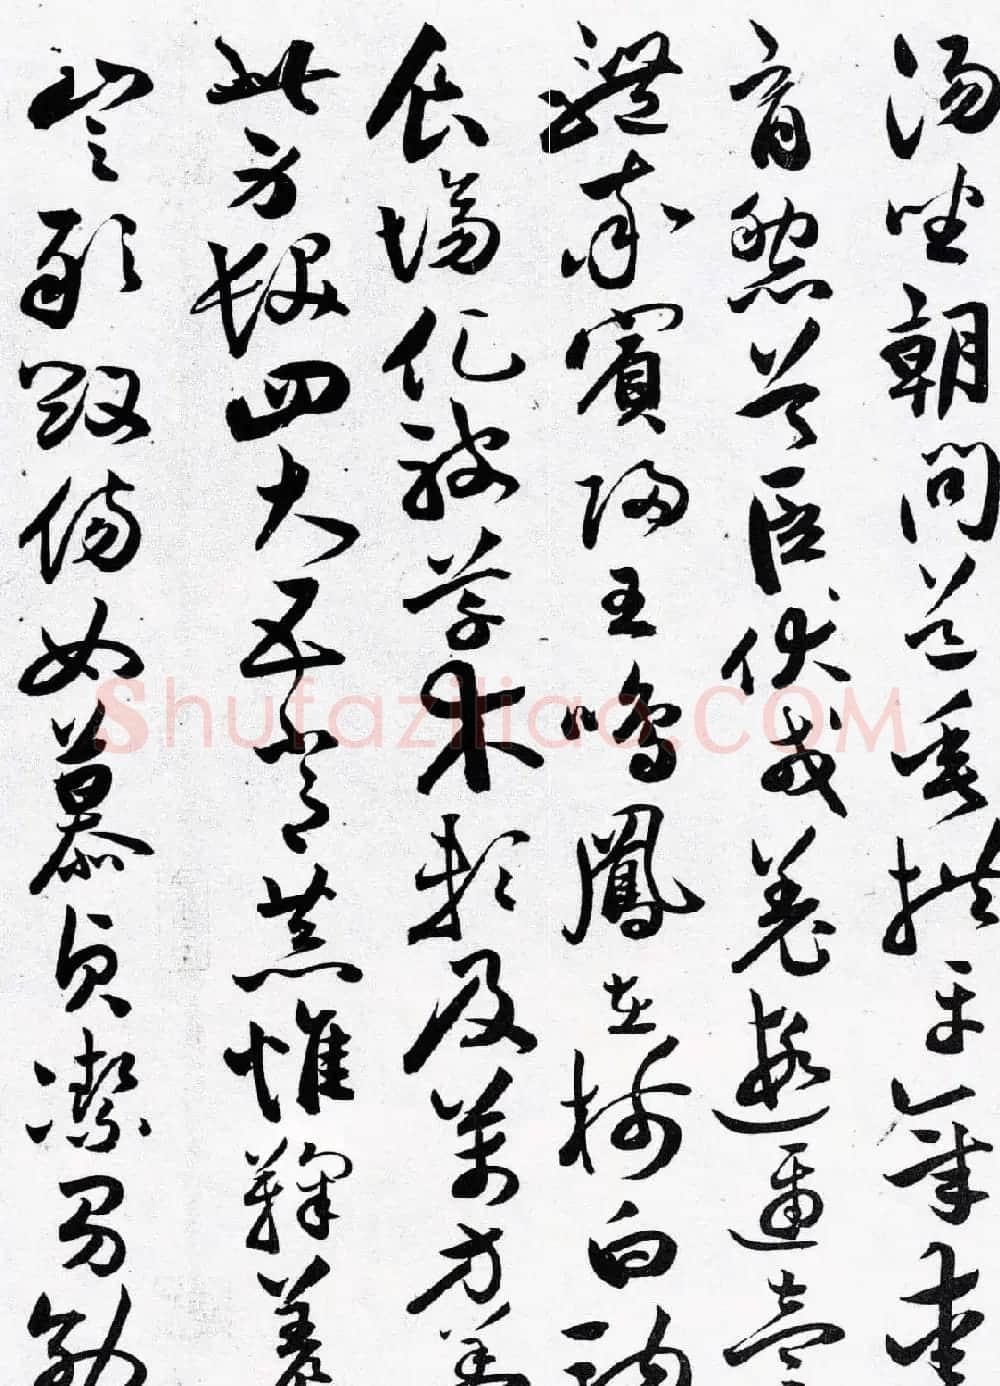 湯坐朝問道垂拱平章愛
育黎首臣伏戎羌遐邇壹
體率賓歸王鳴鳳在樹白駒
食場化被草木賴及萬方蓋
此身髮四大五常恭惟鞠養
豈敢毀傷女慕貞潔男效
Shufaziliao.COM